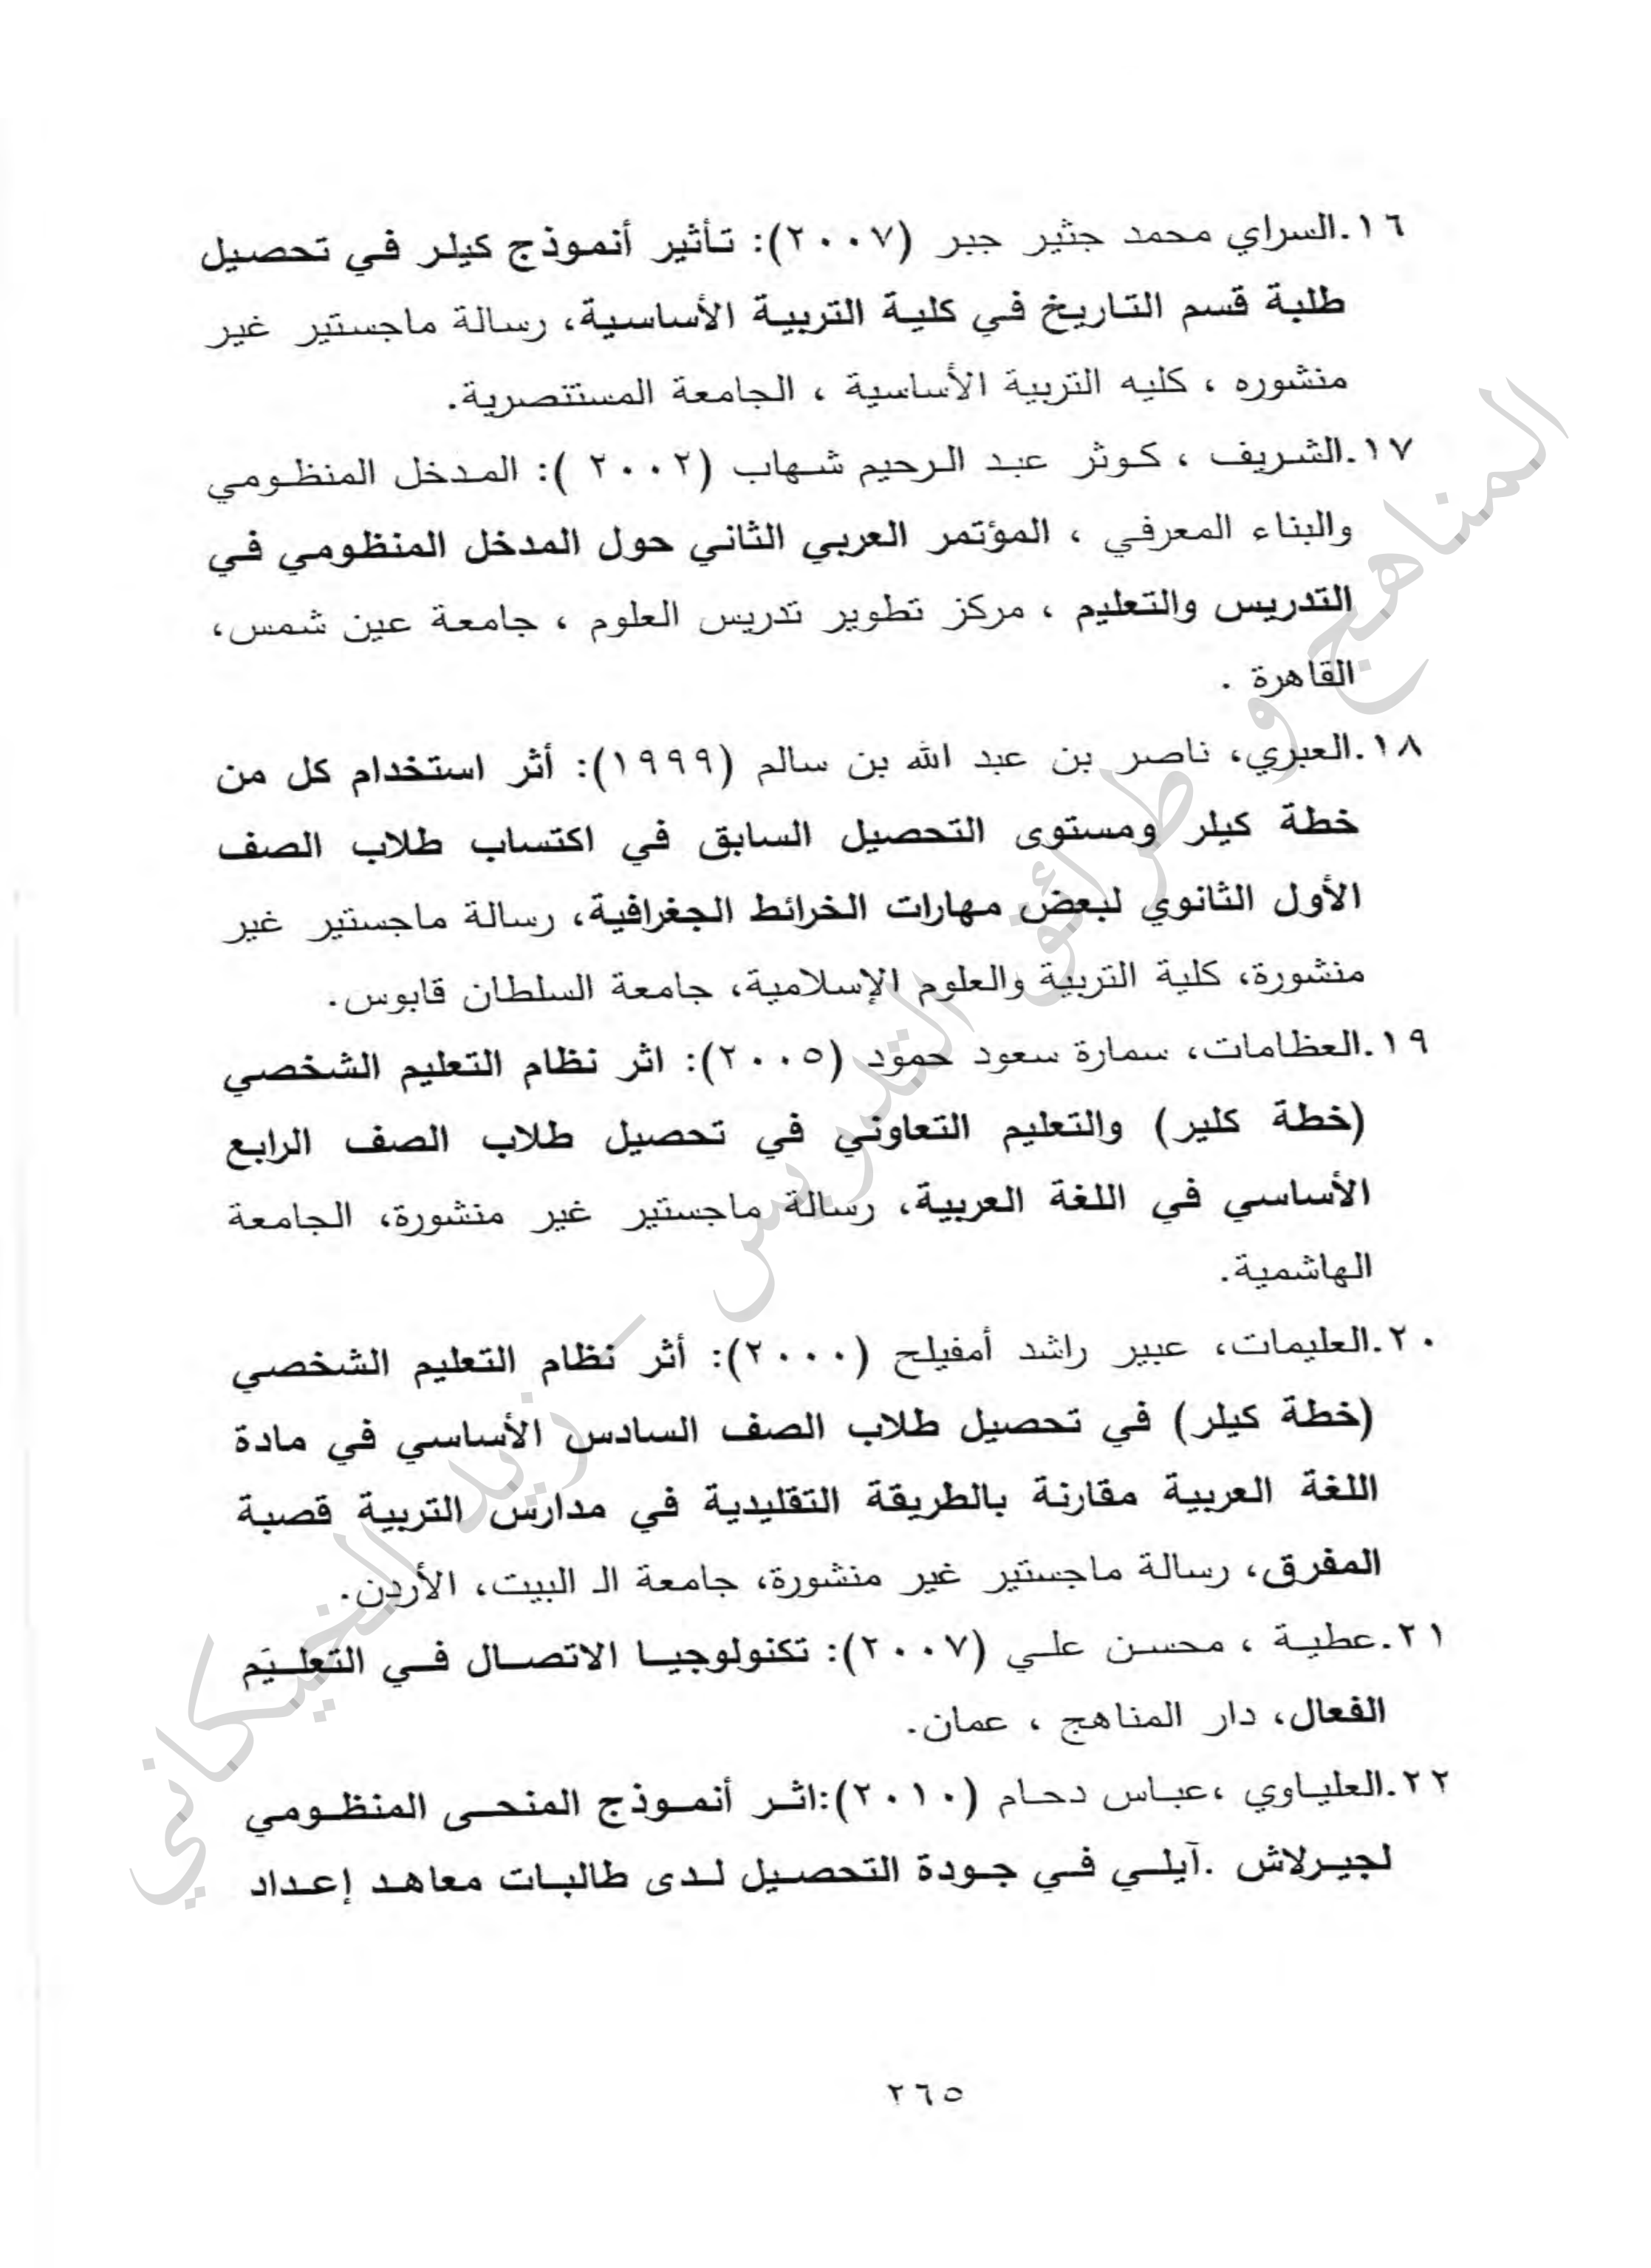 ١٦.السراي محمد جثير جبر (٢٠٠٧): تأثير أنموذج كيلر في تحصيل
طلبة قسم التاريخ في كلية التربية الأساسية، رسالة ماجستير غير
منشوره ، كليه التربية الأساسية ، الجامعة المستنصرية.
١٧.الشريف ، كوثر عبد الرحيم شهاب (٢٠٠٢ ): المدخل المنظومي
والبناء المعرفي ، المؤتمر العربي الثاني حول المدخل المنظومي في
التدريس والتعليم ، مركز تطوير تدريس العلوم ، جامعة عين شمس،
القاهرة .
١٨.العبري، ناصر بن عبد الله بن سالم (١٩٩٩): أثر استخدام كل من
خطة كيلر ومستوى التحصيل السابق في اكتساب طلاب الصف
الأول الثانوي لبعض مهارات الخرائط الجغرافية، رسالة ماجستير غير
منشورة، كلية التربية والعلوم الإسلامية، جامعة السلطان قابوس.
١٩.العظامات، سمارة سعود حمود (٢٠٠٥): اثر نظام التعليم الشخصي
(خطة كلير) والتعليم التعاوني في تحصيل طلاب الصف الرابع
الأساسي في اللغة العربية، رسالة ماجستير غير منشورة، الجامعة
الهاشمية.
٢٠.العليمات، عبير راشد أمفيلح (٢٠٠٠): أثر نظام التعليم الشخصي
(خطة كيلر) في تحصيل طلاب الصف السادس الأساسي في مادة
اللغة العربية مقارنة بالطريقة التقليدية في مدارس التربية قصبة
المفرق، رسالة ماجستير غير منشورة، جامعة الـ البيت، الأردن.
٢١.عطية ، محسن علي (٢٠٠٧): تكنولوجيا الاتصال في التعليم
الفعال، دار المناهج ، عمان.
٢٢.العلياوي ،عباس دحام (٢٠١٠):اثر أنموذج المنحى المنظومي
لجيرلاش .آيلي في جودة التحصيل لدى طالبات معاهد إعداد
٢٦٥
المناهج و طرائق التدريس - زيد الخيكاني